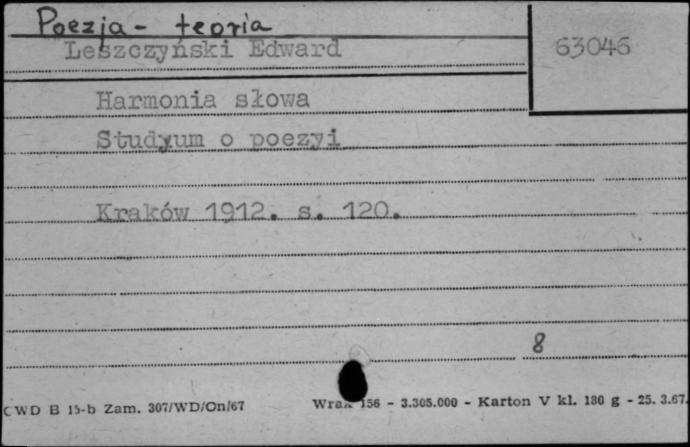 Poezja - teoria
Leszczyński Edward
63046
Harmonia słowa
Studyum o poezyi
Kraków 1912. s. 120.
8
CWD B 15-b Zam. 307/WD/On/67
156 - 3.305.000 - Karton V kl. 180 g - 25. 3.67.